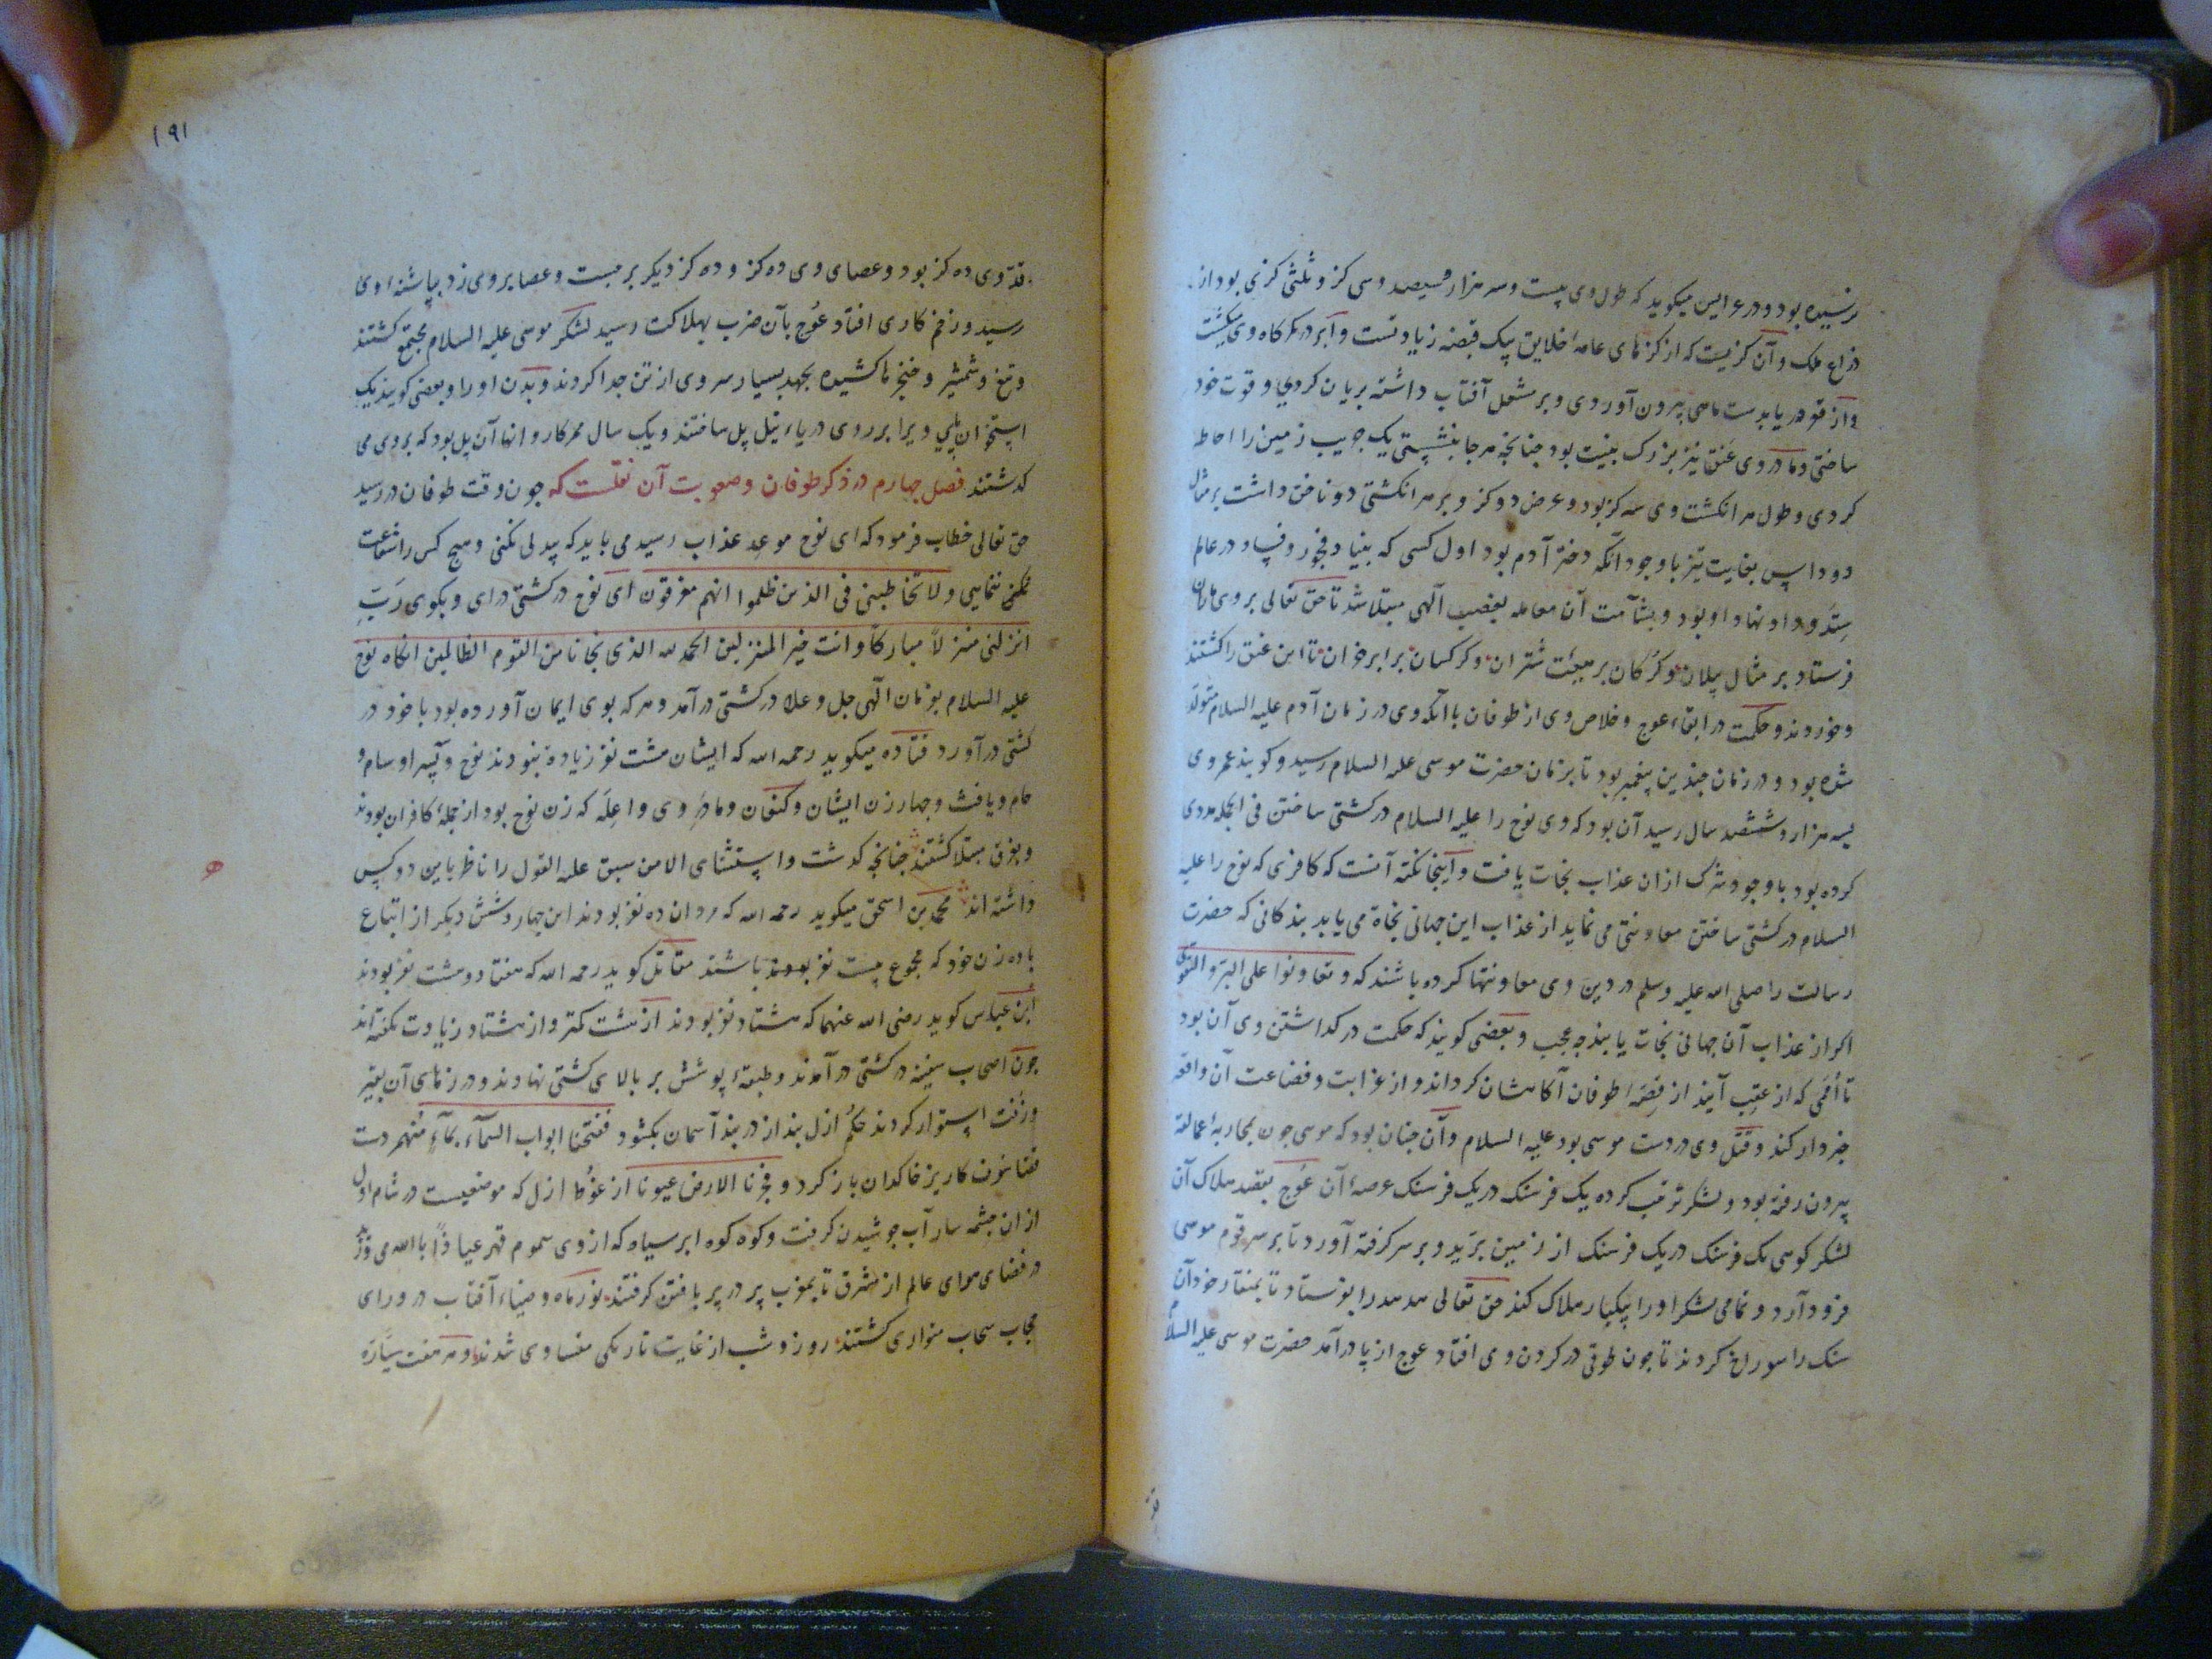 رسیده بود و در عرایس میکوید که طول وی بیست و سه هزار و سیصد و سی کز و ثلثی کزی بود از
ذراع ملک و آن کزیست که از کزهای عامهٔ خلایق یک قبضه زیادتست و ابر در کمرکاه وی
و از قعر دریا بدست ماهی بیرون آوردی و بر مشعل آفتاب داشته بریان کردی و قوت خود
ساختی و مادر وی عنق نیز بزرک بنیت بود چنانچه هر جا بنشستی یک جریب زمین را احاطه
کردی و طول هر انکشت وی سه کز بود و عرض دو کز و بر هر انکشتی دو ناخن داشت بر مثال
دو داس بغایت تیز با وجود آنکه دختر آدم بود اول کسی که بنیاد فجور و فساد در عالم
او نهاد او بود و بشآمت آن معامله بغضب الهی مبتلا شد تا حق تعالی بروی ماران
فرستاد بر مثال پیلان و کرکان بر هیئت شتران و کرکسان برابر خران تا این عنق را کشتند
و خوردند و حکمت در ابقاء عوج و خلاص وی از طوفان با آنکه وی در زمان آدم علیه السلام متولد
شده بود و در زمان چندین پیغمبر بود تا بزمان حضرت موسی علیه السلام رسید و کویند عمر وی
بسه هزار و ششصد سال رسید آن بود که وی نوح را علیه السلام در کشتی ساختن فی الجمله مددی
کرده بود با وجود شرک ازان عذاب نجات یافت و اینجا نکته آنست که کافری که نوح را علیه
السلام در کشتی ساختن معاونتی می نماید از عذاب این جهانی نجاة می یابد بندکانی که حضرت
رسالت را صلی الله علیه وسلم در دین وی معاونتها کرده باشند که و تعاونوا علی البر و التقوی
اکر از عذاب آن جهانی نجات یابند چه عجب و بعضی کویند که حکمت در کداشتن وی آن بود
تا اممی که از عقب آیند از قصهٔ طوفان آکاهشان کرداند و از غرابت و فضاعت آن واقعه
خبردار کند و قتل وی در دست موسی بود علیه السلام و آن چنان بود که موسی چون بمحاربهٔ عمالقه
بیرون رفته بود و لشکر ترتیب کرده یک فرسنک در یک فرسنک عرصهٔ آن عوج بقصد هلاک آن
لشکر کوهی یک فرسنک در یک فرسنک از زمین برید و بر سر کرفته آورد تا بر سر قوم موسی
فرود آرد و تمامی لشکر او را بیکبار هلاک کند حق تعالی هدهد را بفرستاد تا بمنقار خود آن
سنک را سوراخ کردند تا چون طوقی در کردن وی افتاد عوج از پا درآمد حضرت موسی علیه السلام
۱۹۱
قد وی ده کز بود و عصای وی ده کز و ده کز دیکر برجست و عصا بر وی زد بپاشنه اوی
رسید و زخم کاری افتاد عوج بآن ضرب بهلاکت رسید لشکر موسی علیه السلام مجتمع کشتند
و تیغ و شمشیر و خنجرها کشیده بجهد بسیار سر وی از تن جدا کردند و بدن او را و بعضی کویند یک
استخوان پای ویرا بر روی دریاء نیل پل ساختند و یک سال ممر کاروانها آن پل بود که بروی می
کدشتند فصل چهارم در ذکر طوفان و صعوبت آن نقلست که چون وقت طوفان در رسید
حق تعالی خطاب فرمود که ای نوح موعد عذاب رسید می باید که بیدلی نکنی و هیچ کس را شفاعت
نمایی و لا تخاطبنی فی الذین ظلموا انهم مغرقون ای نوح در کشتی درای و بکوی رب
انزلنی منزلا مبارکا و انت خیر المنزلین الحمد لله الذی نجانا من القوم الظالمین انکاه نوح
علیه السلام بفرمان الهی جل و علا در کشتی درآمد و هر که بوی ایمان آورده بود با خود در
کشتی درآورد قتاده میکوید رحمه الله که ایشان هشت نفر زیاده نبودند نوح و سه پسر او سام و
حام و یافث و چهار زن ایشان و کنعان و مادر وی واعله که زن نوح بود از جملهٔ کافران بودند
و بغرق مبتلا کشتند چنانچه کدشت و استثنای الا من سبق علیه القول را ناظر باین دو کس
داشته اند محمد بن اسحق میکوید رحمه الله که مردان ده نفر بودند این چهار و شش دیکر از اتباع
با ده زن خود که مجموع بیست نفر باشند مقاتل کوید رحمه الله که هفتاد و هشت نفر بودند
ابن عباس کوید رضی الله عنهما که هشتاد نفر بودند از هشت کمتر و از هشتاد زیادت نکفته اند
چون اصحاب سفینه در کشتی درآمدند و طبقهٔ پوشش بر بالای کشتی نهادند و درزهای آن بقیر
و زفت استوار کردند حکم ازل بند از در بند آسمان بکشود ففتحنا ابواب السمآء بمآء منهمر دست
قضا خون کاریز خاکدان باز کرد و فجرنا الارض عیونا از غوطهٔ ازل که موضعیست در شام اول
ازان چشمه سار آب جوشیدن کرفت و کوه کوه ابر سیاه که از وی سموم قهر عیاذا بالله می وزد
در فضای هوای عالم از مشرق تا بمغرب پر در پر بافتن کرفتند نور ماه و ضیاء آفتاب در ورای
حجاب سحاب متواری کشتند روز و شب از غایت تاریکی متساوی شدند و هر هفت سیاره